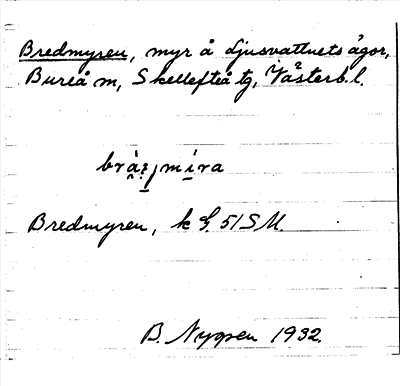 Bredmyren, myr å Djusvattnets ägor,
Bureå m, Skellefteå tg, Västerb. l.
Bredmyren, k G. 51 S M.
B. Nygren 1932.